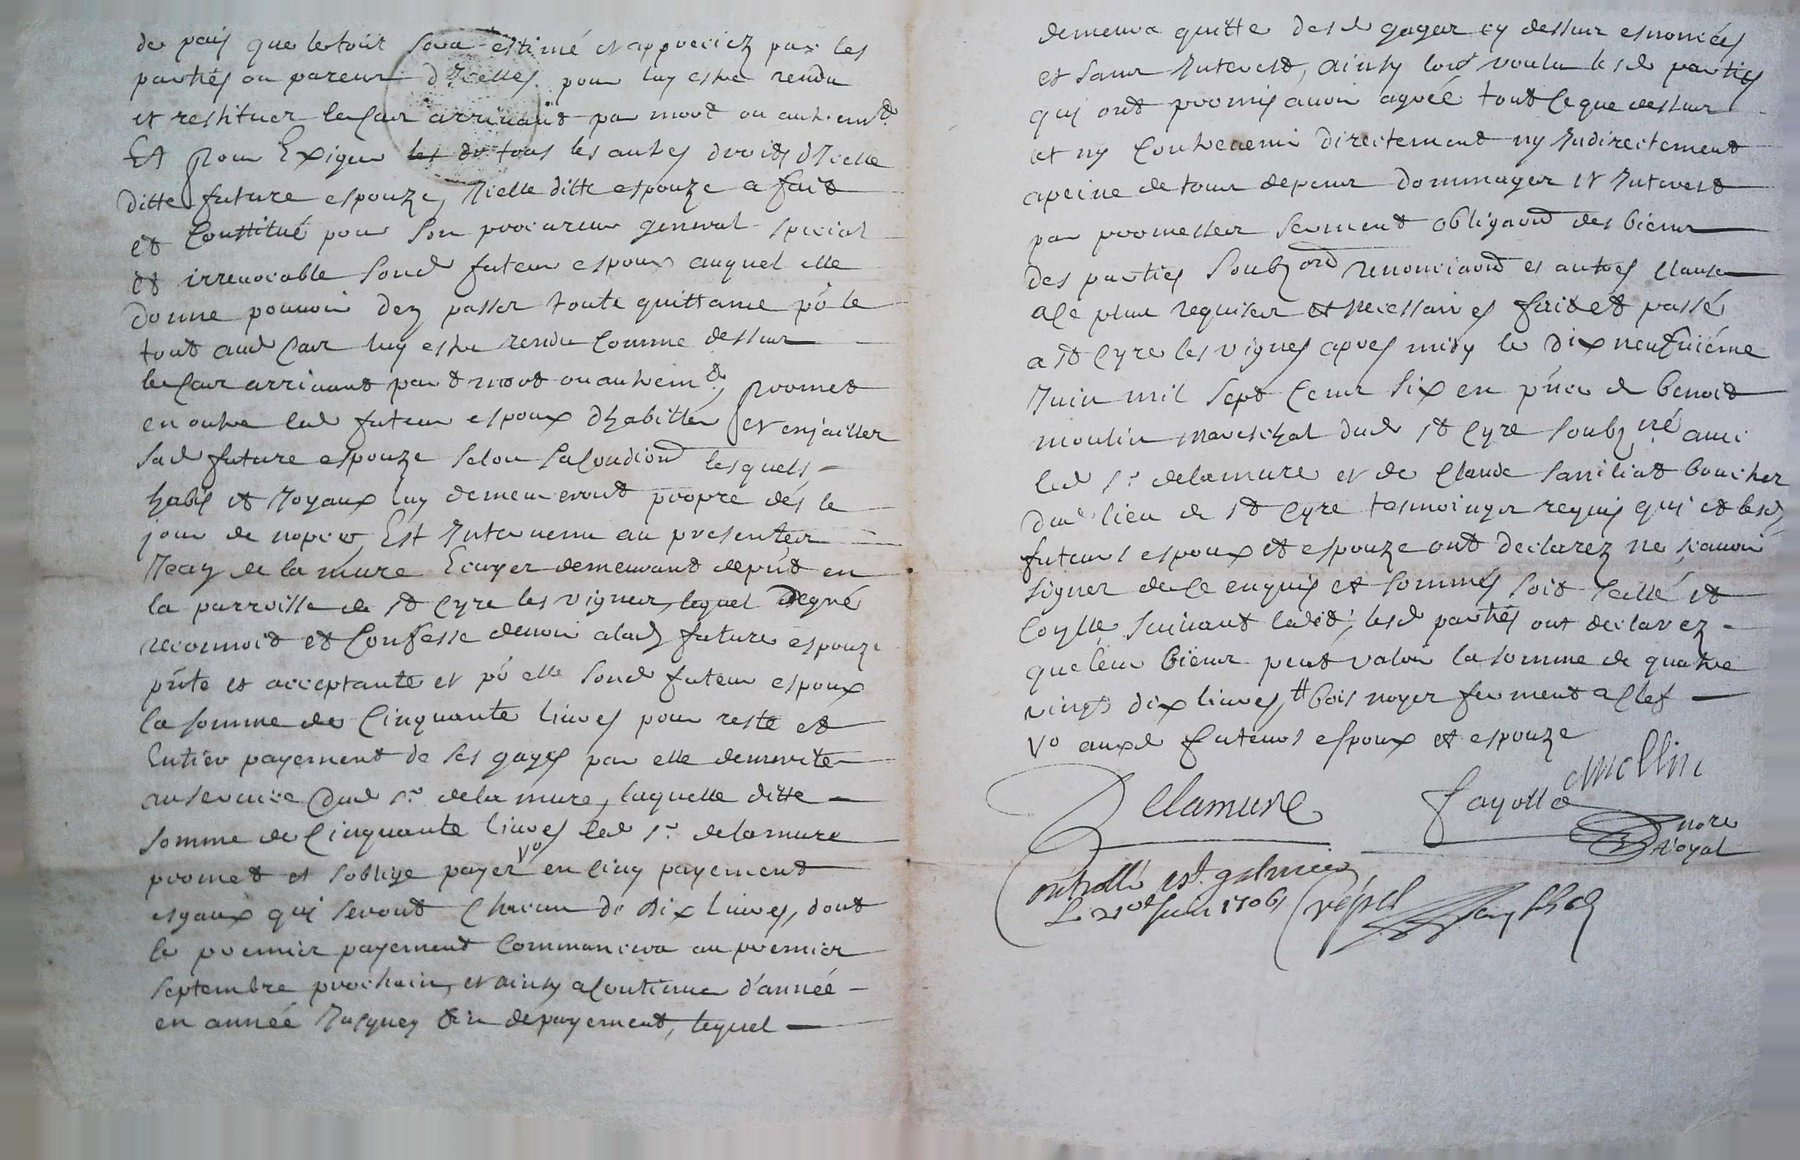 de pais que letout sera estimé et appreciez par les
parties ou pareux d'Icelles pour luy estre rendu
et restituer lecas arrivant par mort ou autremt.
Et pour Exiger de tous les autres droits d'Icelle
ditte future espouze, Icelle ditte espouze a fait
et Constitué pour son procureur general special
et irrevocable sond futeur espoux auquel elle
donne pouvoir dez passer toute quittance po le
tout aud cas luy estre rendu Comme dessus
lecas arrivant par mort ou autremt, promet
en outre led futeur espoux d'habiller et enjailler
sad future espouze selon sa Condiond lesquels
habis et Joyaux luy demeureront propre dés le
jour de nopces Est Intervenu au present
de la mure Ecuyer demeurant depnt en
la parroisse de st Cyre les vignes, lequel de gré
reconnoit et Confesse devoir alad future espouze
pnte et acceptante et po elle sond futeur espoux
la somme de Cinquante livres pour reste et
Entier payement de ses gages par elle demerite
au service dud sr. delamure, laquelle ditte
somme de Cinquante livres led sr. delamure
promet et soblige payer vo en Cinq payement
esgaux qui seront Chacun de dix livres, dont
le premier payement Commancera au premier
septembre prochain, et ainsy a Continue d'année
en année Jusques fin depayement, lequel
demeure quitte desd gages cy dessus esnoncés
et sans Interest, ainsy lont voulu lesd parties
qui ont promis avoir agréé tout Ceque dessus
et ny Contrevenir directement ny Indirectement
apeine detous depens dommages et Interest
par promesses serment obligaond des biens
des parties soubz ond renonciaond et autres Clauses
a Ce plus requises et necessaires fait et passé
a st Cyre les vignes apres midy le dix neufviéme
Juin mil sept Cens six en pnce de benoit
moulin mareschal dud st Cyre soubz né avec
led sr. delamure et de Claude boucher
dud lieu de st Cyre tesmoinges requis qui et lesd
futeurs espoux et espouze ont declarez ne scavoir
signer dece enquis et sommés soit scellé et
Coylle suivant ledit; lesd parties ont declarez
queleur biens peut valoir la somme de quatre
vingt dix livres, # bois noyer ferment a Clef
vo auxd futeurs espoux et espouze
Delamure Fayolle Mollin
nore
Royal
Controllé est galmier
Le 21e Juin 1706